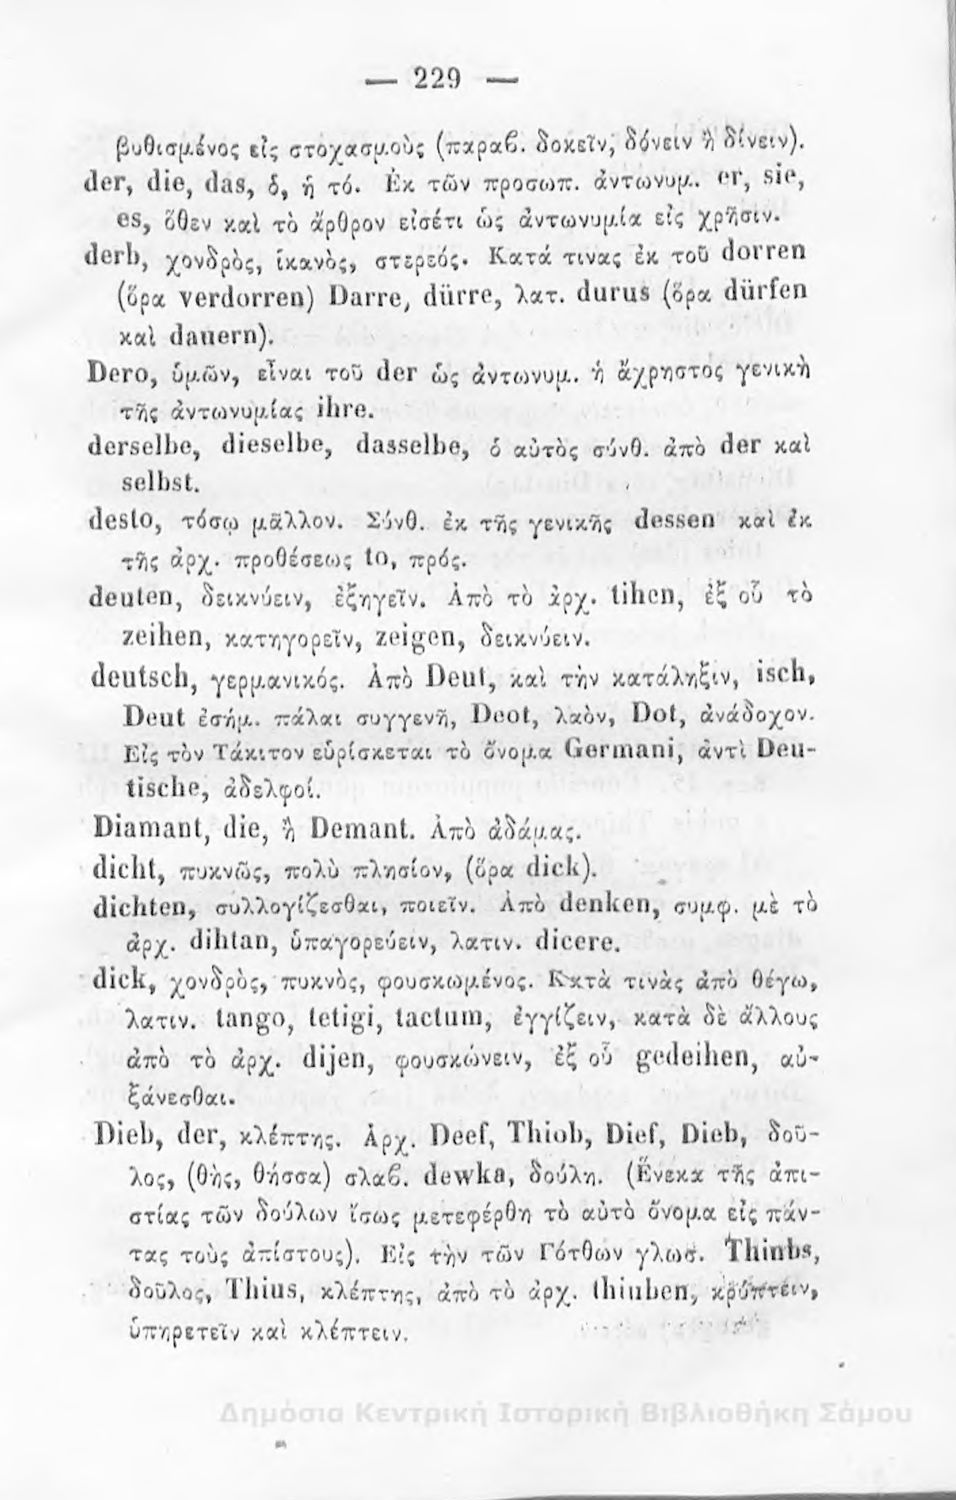 — 229 —
βυθισμένος εἰς στοχασμοὺς (παραβ. δοκεῖν, δόνειν ἢ δίνειν).
der, die, das, ὁ, ἡ τό. Ἐκ τῶν προσωπ. ἀντωνυμ. er, sie,
es, ὅθεν καὶ τὸ ἄρθρον εἰσέτι ὡς ἀντωνυμία εἰς χρῆσιν.
derb, χονδρὸς, ἱκανὸς, στερεός. Κατά τινας ἐκ τοῦ dorren
(ὅρα verdorren) Darre, dürre, λατ. durus (ὅρα dürfen
καὶ dauern).
Dero, ὑμῶν, εἶναι τοῦ der ὡς ἀντωνυμ. ἡ ἄχρηστος γενικὴ
τῆς ἀντωνυμίας ihre.
derselbe, dieselbe, dasselbe, ὁ αὐτὸς σύνθ. ἀπὸ der καὶ
selbst.
desto, τόσῳ μᾶλλον. Σύνθ. ἐκ τῆς γενικῆς dessen καὶ ἐκ
τῆς ἀρχ. προθέσεως to, πρός.
deuten, δεικνύειν, ἐξηγεῖν. Ἀπὸ τὸ ἀρχ. tihen, ἐξ οὗ τὸ
zeihen, κατηγορεῖν, zeigen, δεικνύειν.
deutsch, γερμανικός. Ἀπὸ Deut, καὶ τὴν κατάληξιν, isch,
Deut ἐσήμ. πάλαι συγγενῆ, Deot, λαὸν, Dot, ἀνάδοχον.
Εἰς τὸν Τάκιτον εὑρίσκεται τὸ ὄνομα Germani, ἀντὶ Deu-
tische, ἀδελφοί.
Diamant, die, ἢ Demant. Ἀπὸ ἀδάμας.
dicht, πυκνῶς, πολὺ πλησίον, (ὅρα dick).
dichten, συλλογίζεσθαι, ποιεῖν. Ἀπὸ denken, συμφ. μὲ τὸ
ἀρχ. dihtan, ὑπαγορεύειν, λατιν. dicere.
dick, χονδρὸς, πυκνὸς, φουσκωμένος. Κατὰ τινὰς ἀπὸ θέγω,
λατιν. tango, tetigi, tactum, ἐγγίζειν, κατὰ δὲ ἄλλους
ἀπὸ τὸ ἀρχ. dijen, φουσκώνειν, ἐξ οὗ gedeihen, αὐ-
ξάνεσθαι.
Dieb, der, κλέπτης. Ἀρχ. Deef, Thiob, Dief, Dieb, δοῦ-
λος, (θὴς, θήσσα) σλαβ. dewka, δούλη. (Ἕνεκα τῆς ἀπι-
στίας τῶν δούλων ἴσως μετεφέρθη τὸ αὐτὸ ὄνομα εἰς πάν-
τας τοὺς ἀπίστους). Εἰς τὴν τῶν Γότθων γλωσ. Thiubs,
δοῦλος, Thius, κλέπτης, ἀπὸ τὸ ἀρχ. thiuben, κρύπτειν,
ὑπηρετεῖν καὶ κλέπτειν.
Δημόσια Κεντρική Ιστορική Βιβλιοθήκη Σάμου